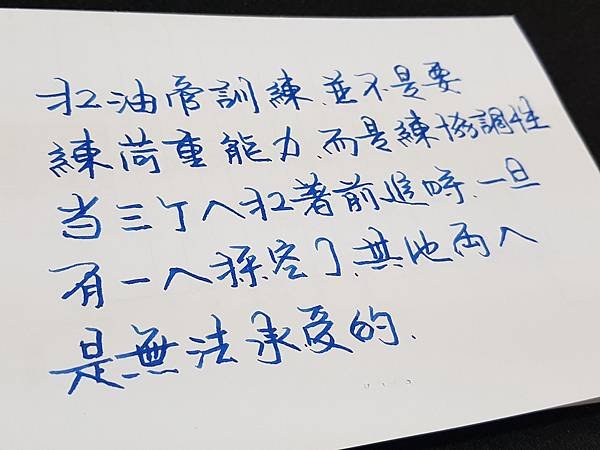 扛油管訓練.並不是要
練荷重能力.而是練協調性
当三个人扛著前進時.一旦
有一人踩空了.其他兩人
是無法承受的.